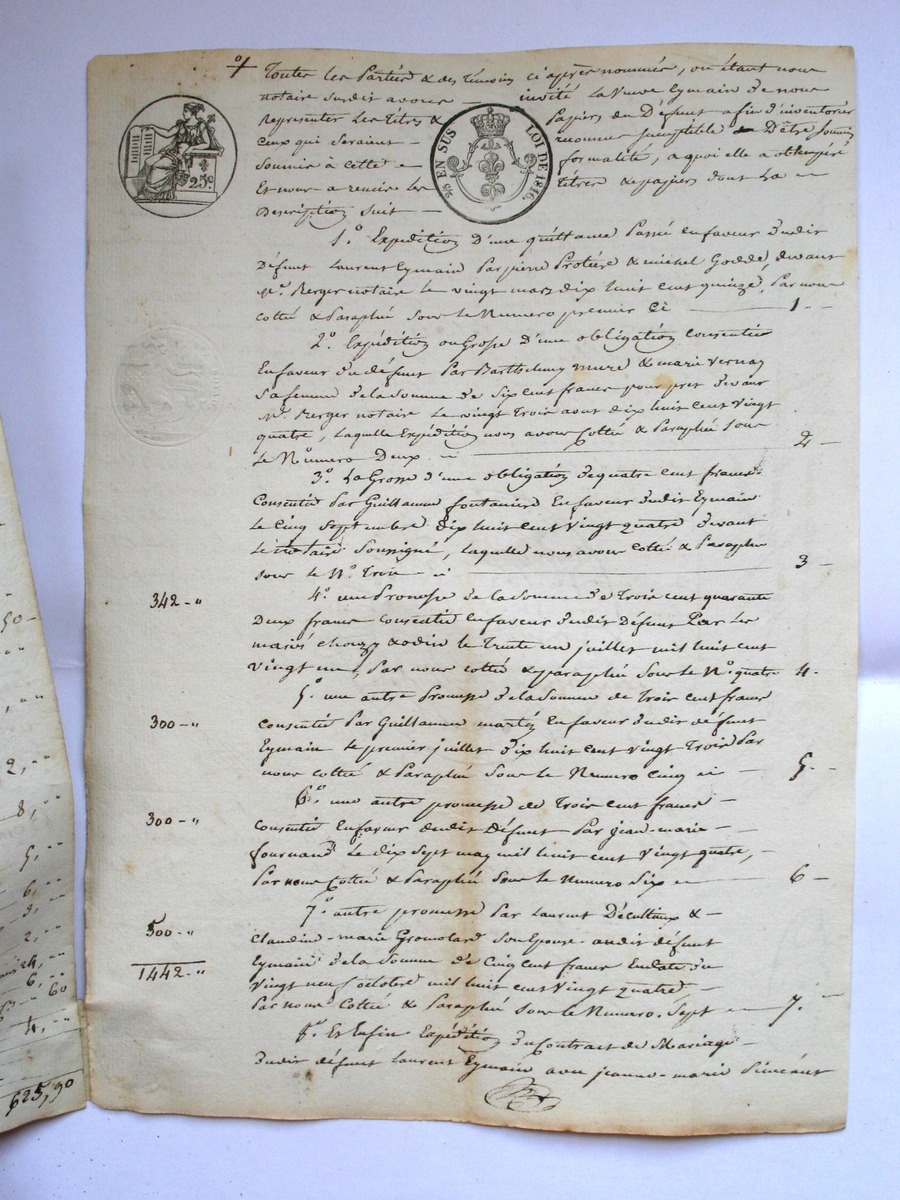 Toutes les Parties & des temoins ci après nommés, où étant nous
notaire susdit avons — invité la Veuve Eymain de nous
Représenter les titres & Papiers du Défunt afin d'inventorier
Ceux qui seraient — susceptible d'être
Soumis à cette — formalité, a quoi elle a obtempéré
Et nous a remise les titres & papiers dont la —
Description suit —
25c
5/5 EN SUS LOI DE 1816.
1.o Expedition d'une quittance Passée en faveur dudit
Défunt Laurent Eymain Par pierre Protière & michel Goddé, devant
Me. Berger notaire le vingt mars dix huit cent quinze, Par nous
cotté & Paraphé sous le Numero premier Ci — 1 -
2.o Expédition ou Grosse d'une obligation consentie
En faveur du défunt Par Barthelemy mure & marie Vernay
Sa femme de la Somme de Six cent francs pour pret devant
Me. Berger notaire Le vingt Trois aout dix huit Cent Vingt
quatre, laquelle Expédition nous avons Cotté & Paraphé Sous
Le Numero Deux. ci — 2 -
3.o La Grosse d'une obligation de quatre cent francs.
Consentie Par Guillaume fontanière En faveur dudit Eymain
Le Cinq Septembre dix huit Cent Vingt quatre devant
Le notaire Soussigné, laquelle nous avons cotté & Paraphé
sous le No. Trois — ci — 3 -
342 - " 4.o une Promesse de la Somme de Trois cent quarante
Deux francs Consentie en faveur dudit Défunt Par les
mariés & odin le Trente un juillet mil huit cent
Vingt un, Par nous cotté & paraphé Sous le No. quatre 4.
5.o une autre Promesse de la Somme de Trois Cent francs
300 - " Consentie Par Guillaume En faveur dudit défunt
Eymain le premier juillet dix huit Cent Vingt Trois Par
nous cotté & Paraphé Sous le Numero Cinq ci — 5. -
6.o une autre promesse de Trois cent francs —
300 - " Consentie En faveur dudit Défunt Par jean-marie —
fournand le dix Sept may mil huit cent Vingt quatre, —
Par nous Cotté & Paraphé Sous le Numero Six ci — 6 -
7.o autre promesse Par Laurent Décultieux & —
500 - " Claudine-marie Gromolard Son Epouse. audit défunt
1442 - " Eymain de la Somme de Cinq cent francs En date du
Vingt neuf octobre mil huit cent Vingt quatre —
Par nous Cotté & Paraphé Sous le Numero. Sept ci — 7. -
8.o Et Enfin Expédition du Contract de Mariage —
dudit défunt Laurent Eymain avec jeanne-marie
50 -
2, --
8, --
5, --
6, --
3, --
2, --
24, --
6, --
60
4, --
625, 90